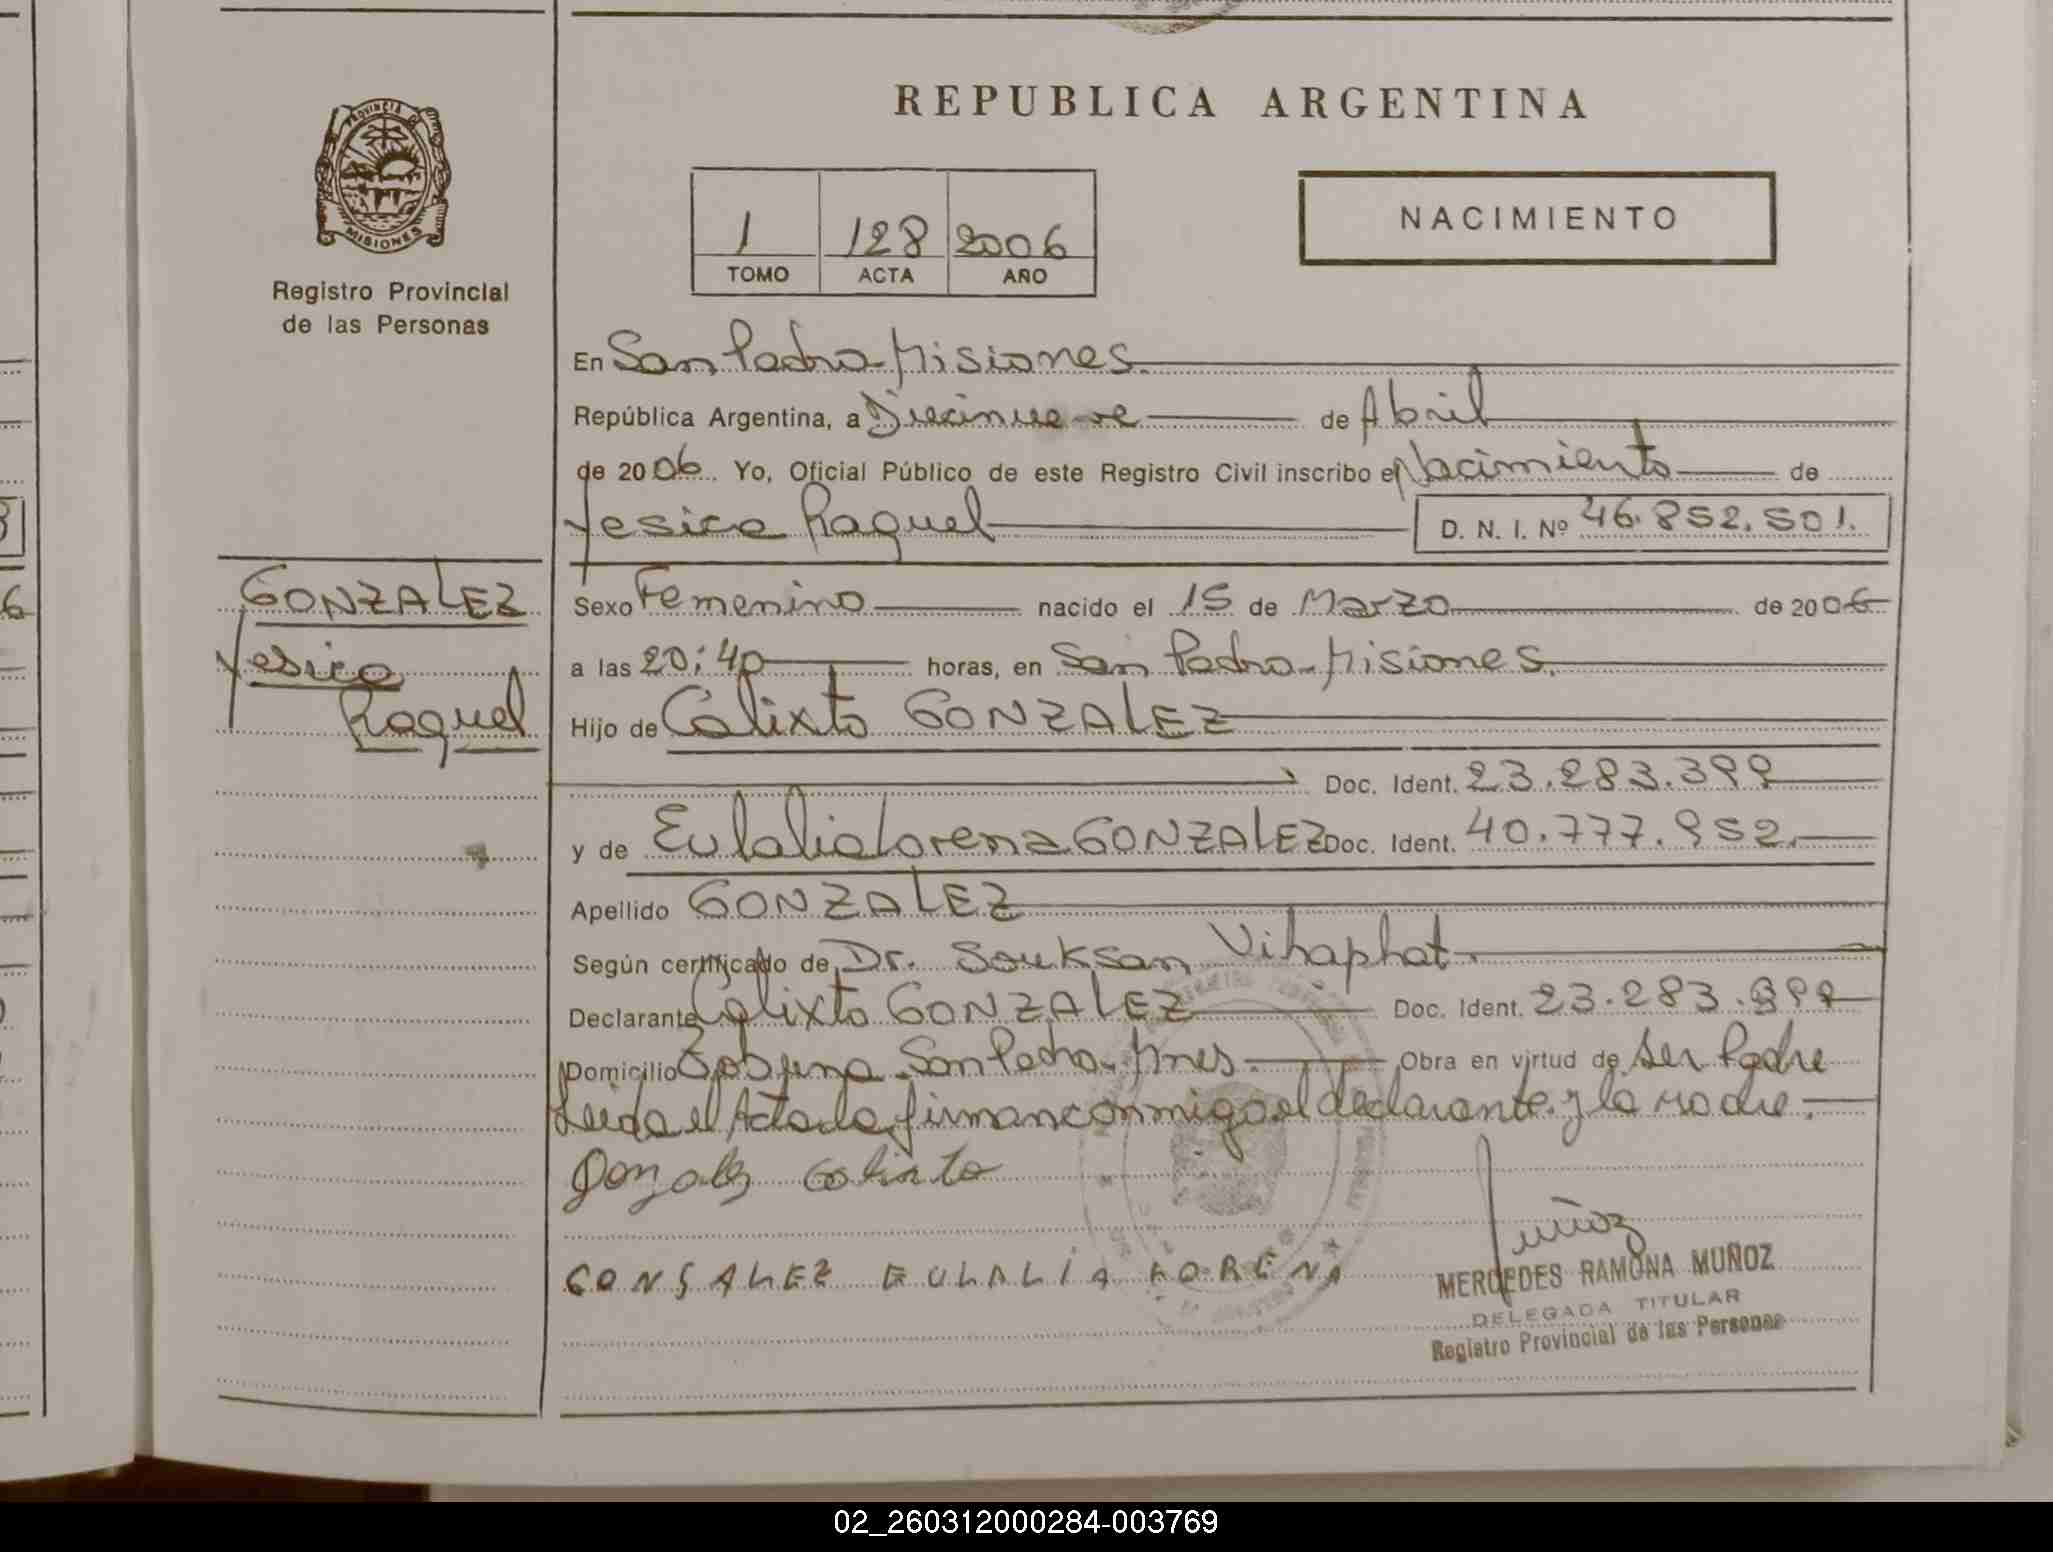 REPUBLICA ARGENTINA
PROVINCIA DE
MISIONES
Registro Provincial
de las Personas
1 128 2006
TOMO ACTA AÑO
NACIMIENTO
En San Pedro - Misiones.
República Argentina, a Diecinueve de Abril
de 2006. Yo, Oficial Público de este Registro Civil inscribo el Nacimiento de
Yesica Raquel D. N. I. Nº 46.852.501.
GONZALEZ
Yesica
Raquel
Sexo Femenino nacido el 15 de Marzo de 2006
a las 20:40 horas, en San Pedro - Misiones.
Hijo de Calixto GONZALEZ
Doc. Ident. 23.283.399
y de Eulalia Lorena GONZALEZ Doc. Ident. 40.777.952.
Apellido GONZALEZ
Según certificado de Dr. Souksan Vihaphat.
Declarante Calixto GONZALEZ Doc. Ident. 23.283.399
Domicilio San Pedro - Mnes. Obra en virtud de ser Padre
Leida el Acta la firman conmigo el declarante y la madre.
Gonzalez Calixto
GONSALEZ EULALIA LORENA
Muñoz
MERCEDES RAMONA MUÑOZ
DELEGADA TITULAR
Registro Provincial de las Personas
02_260312000284-003769